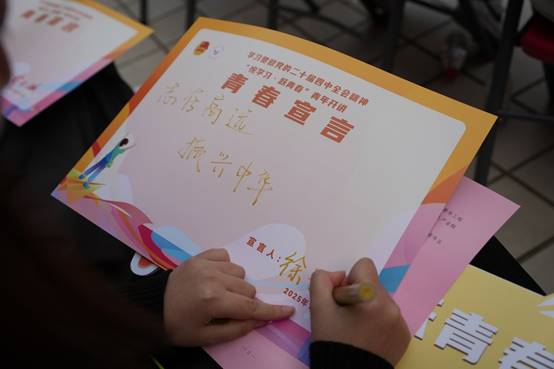 学习贯彻党的二十届四中全会精神
学习·跃青春"青年开讲
青春宣言
志存高远
振兴中华
宣言人：徐
2025年
青春